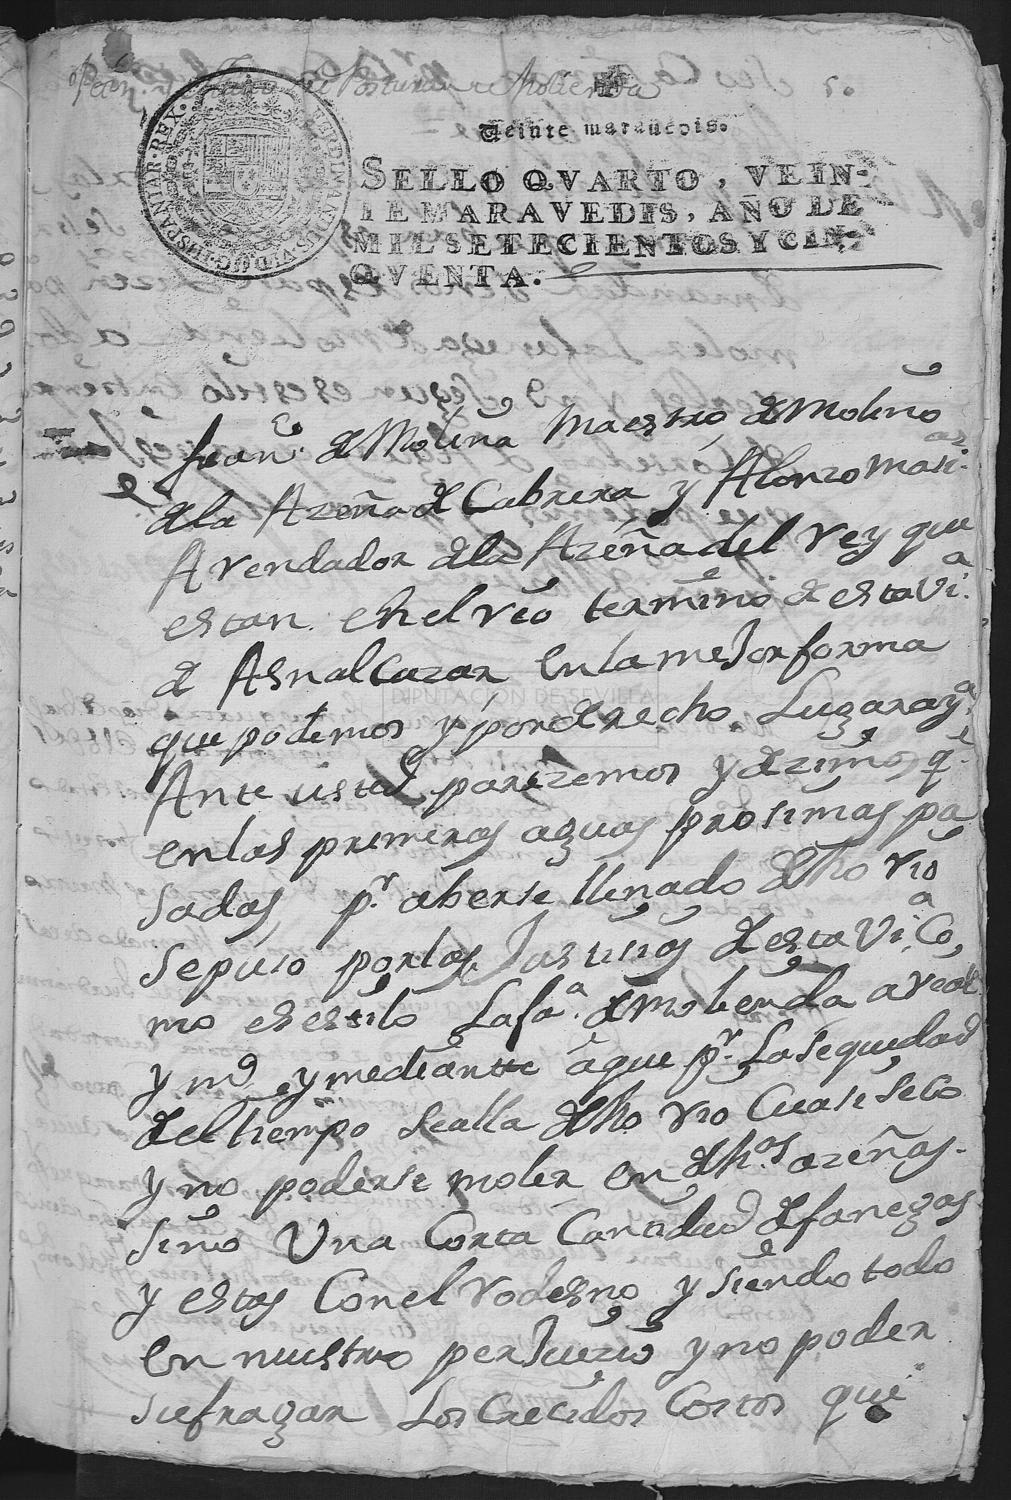 Postura de Molienda
5.
HISPANIAR·REX· FERDINANDUS·VI·D·G·
Veinte marauedis.
SELLO QVARTO, VEIN-
TE MARAVEDIS, AÑO DE
MIL SETECIENTOS Y CIN-
QVENTA.
Juan de Molina Maestro de Molino
de la Azeña de Cabrera y Alonso Mari.as
Arendador de la Azeña del Rey que
estan en el rio termino de esta Vi.a
de Asnalcazar en la mejor forma
que podemos y por derecho Lugar aya
Ante usted parezemos y dezimos q.e
en las primeras aguas prosimas pa
sadas, p.r aberse llenado dho rio
se puso por los Justisias de esta Vi.a Co,
mo es estilo La fa.a de molienda a real
y m.o y mediantte a que p.r La sequedad
del tiempo se alla dho rio Cuasi seco
y no poderse moler en dh.as azeñas.
sino Una Corta Cantidad de fanegas
y estas Con el rodesno y siendo todo
en nuestro perJuizio y no poder
sufragar Los Crecidos Costos que
DIPUTACIÓN DE SEVILLA